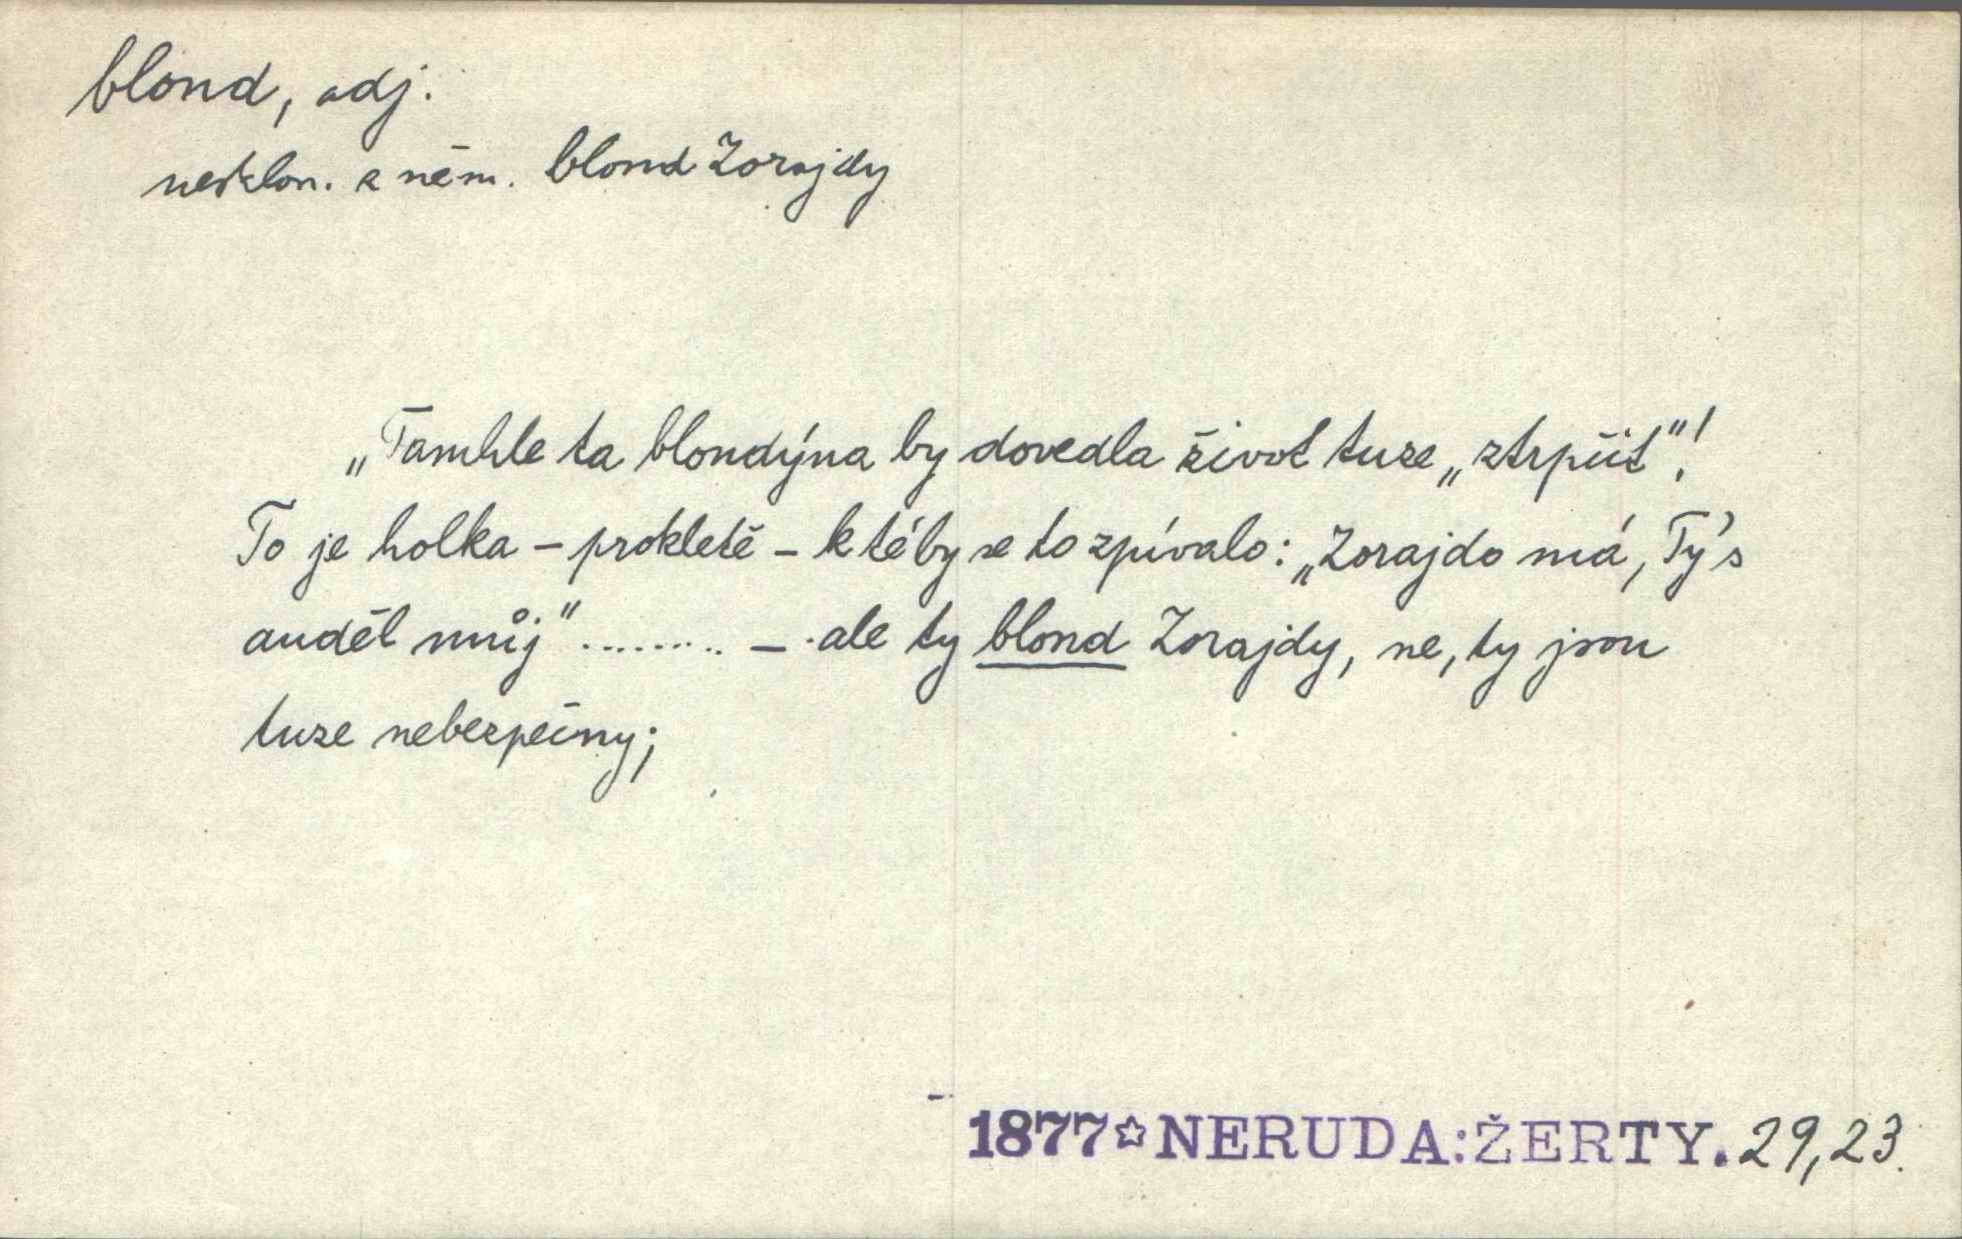 blond, adj.
nesklon. z něm. blond Zorajdy
„Tamhle ta blondýna by dovedla život tuze „ztrpčit“!
To je holka – prokletě – k té by se to zpívalo: „Zorajdo má, Ty's
anděl můj“ ........ – ale ty blond Zorajdy, ne, ty jsou
tuze nebezpečny;
1877☆NERUDA:ŽERTY. 29,23.